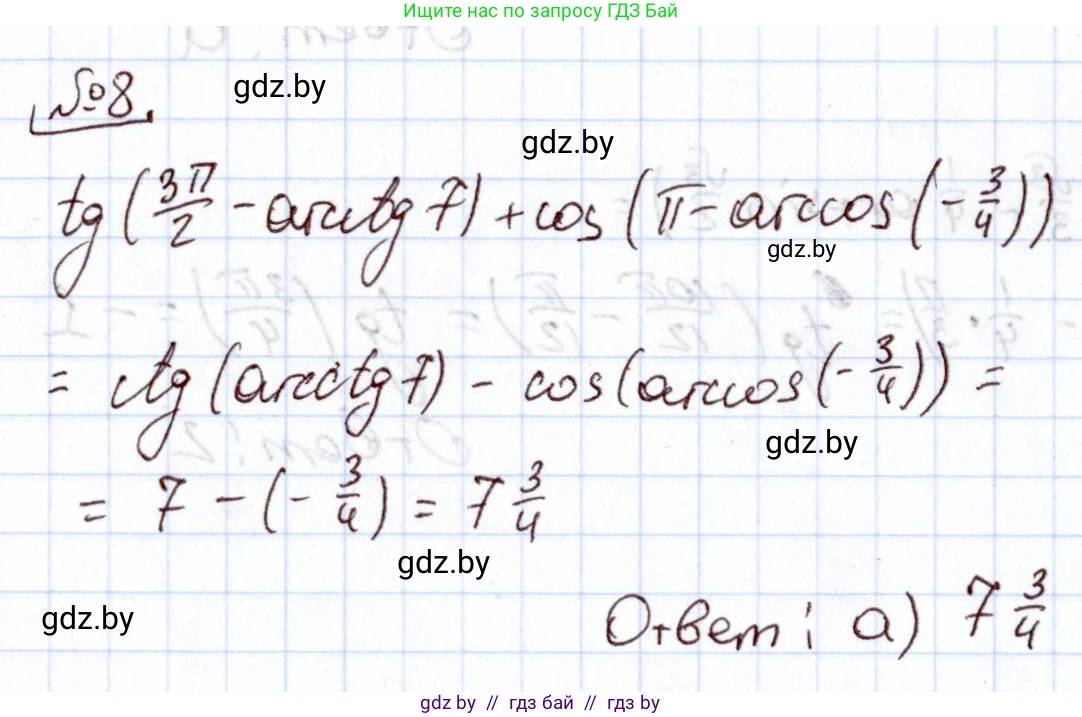 Ищите нас по запросу ГДЗ Бай
№8.
gdz.by
gdz.by
tg (3π/2 - arcctg 7) + cos (π - arccos (- 3/4))
gdz.by
= ctg (arcctg 7) - cos (arccos (- 3/4)) =
gdz.by
= 7 - (- 3/4) = 7 3/4
gdz.by
gdz.by
Ответ: а) 7 3/4
gdz.by // гдз бай // gdz.by